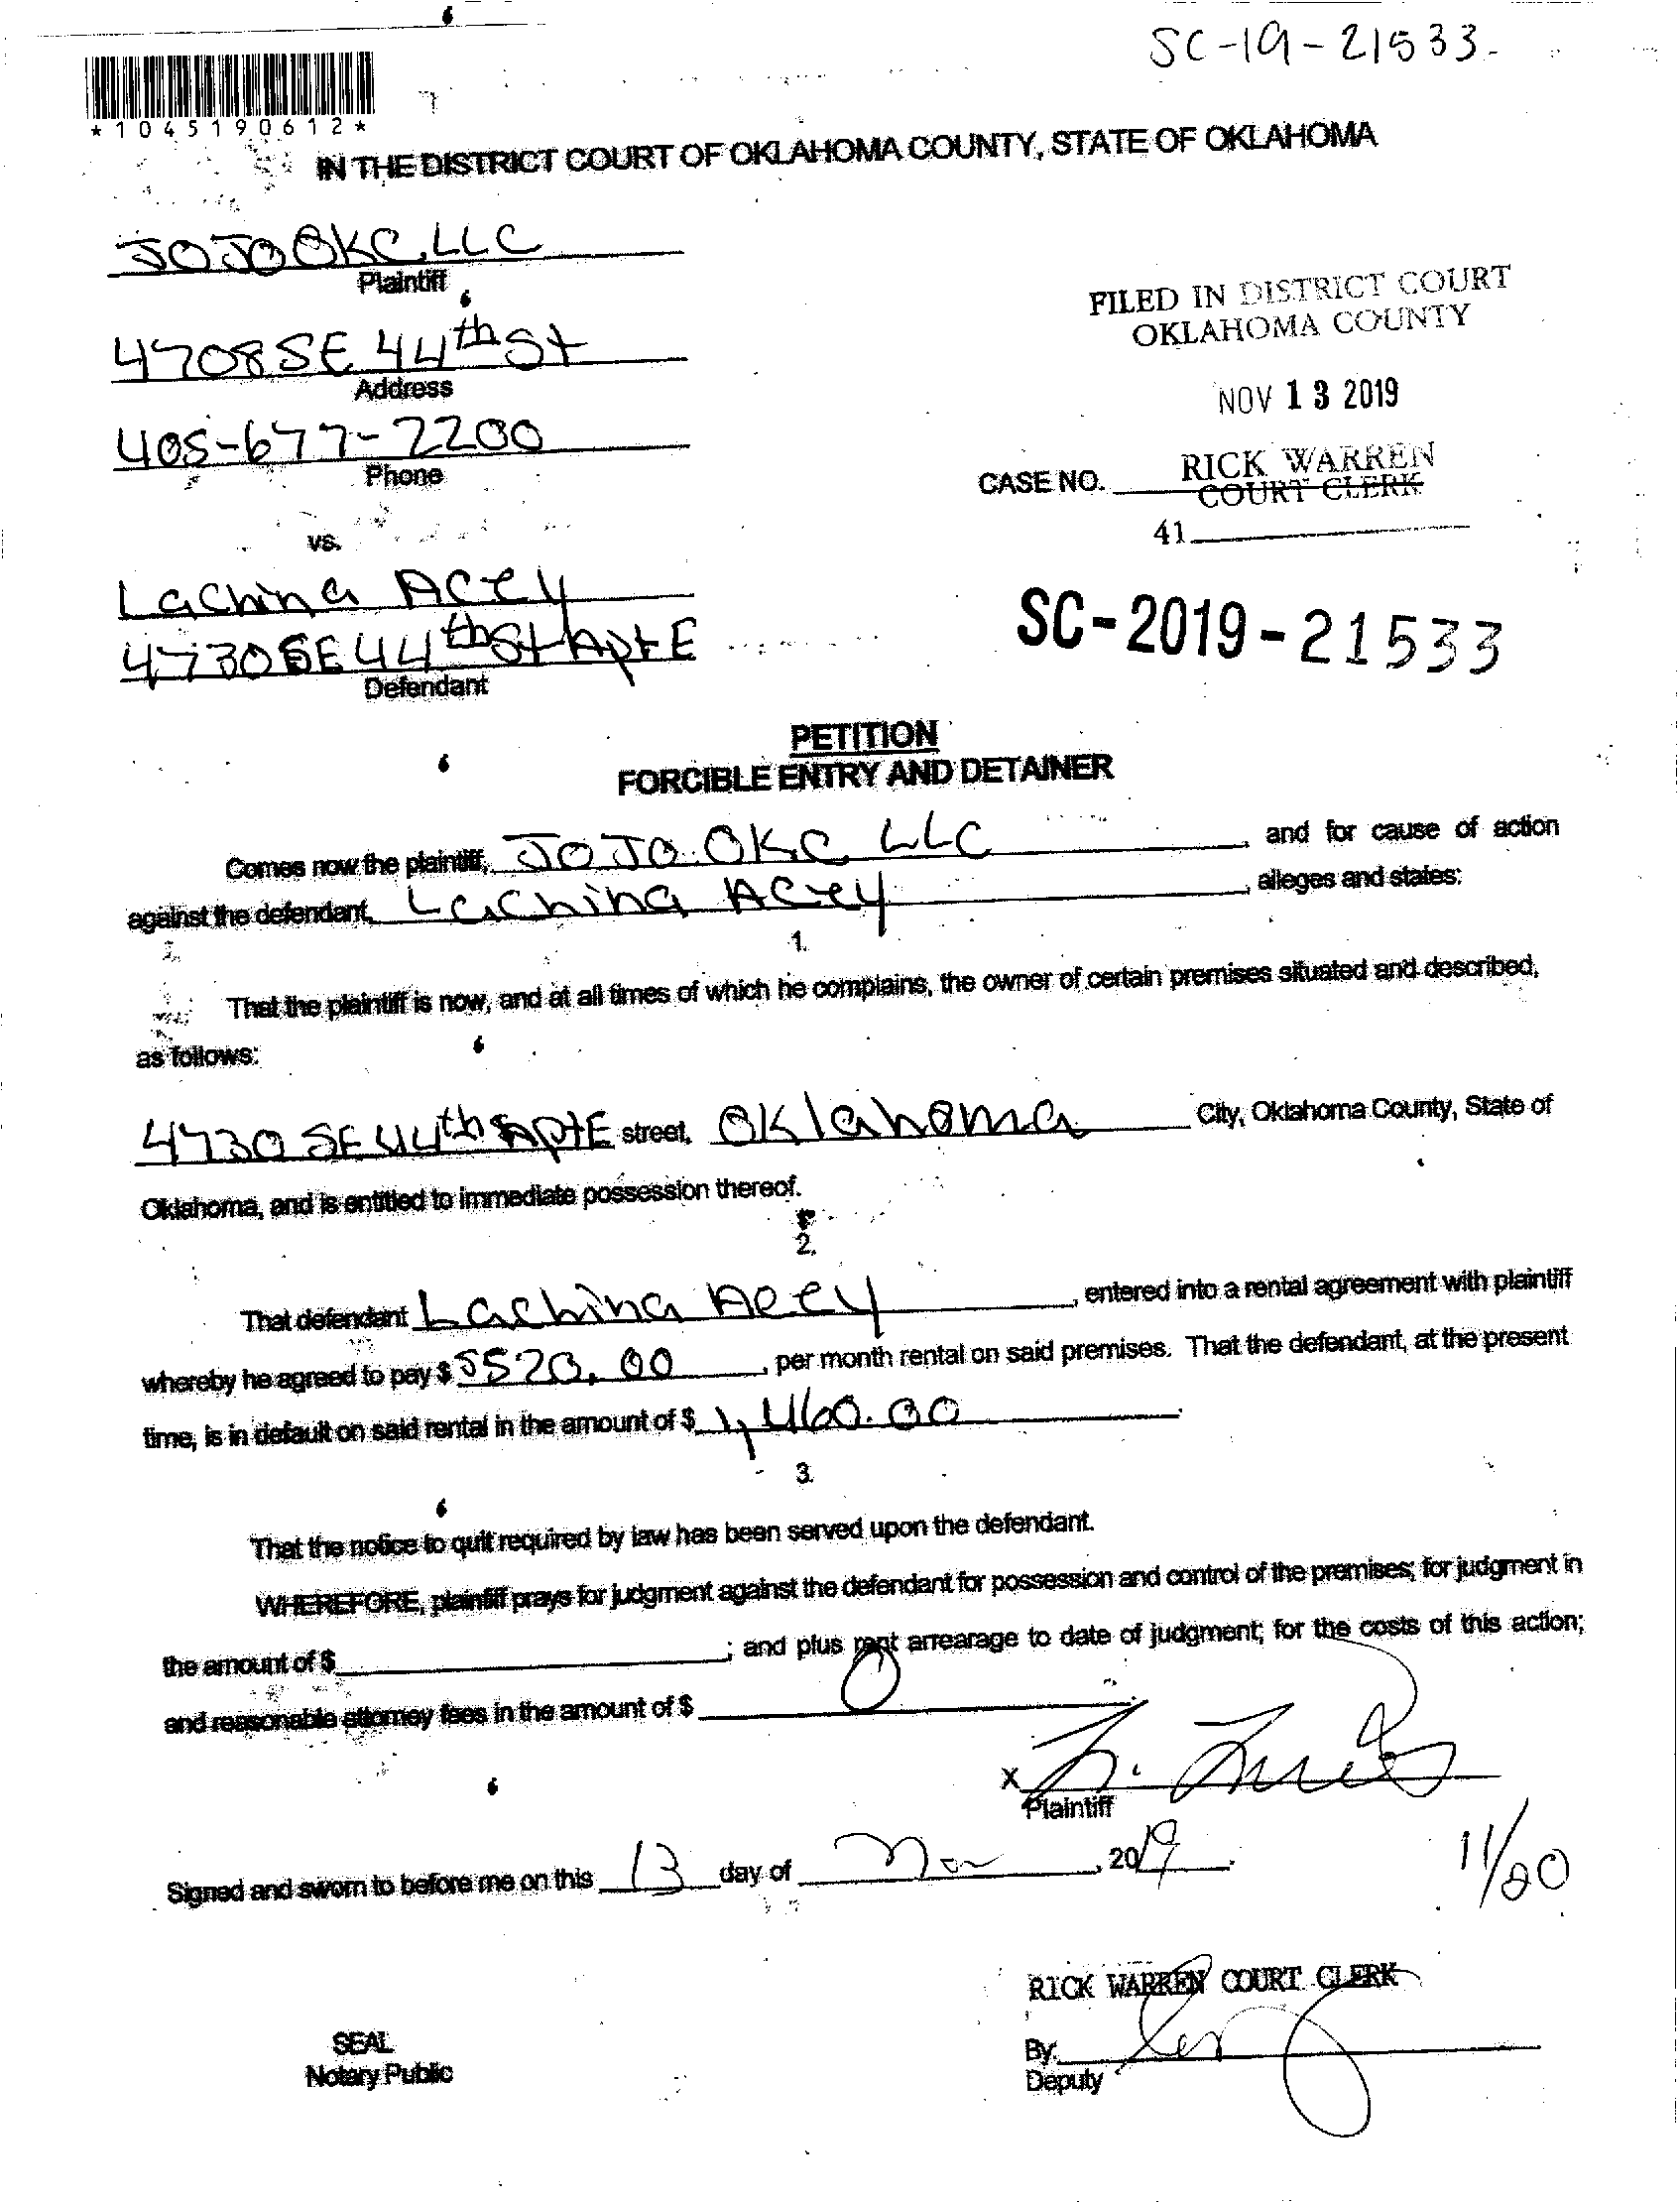 SC-19-21533
*1045190612*
IN THE DISTRICT COURT OF OKLAHOMA COUNTY, STATE OF OKLAHOMA
JOJO OKC, LLC
Plaintiff
4708 SE 44th St
Address
405-677-2200
Phone
FILED IN DISTRICT COURT
OKLAHOMA COUNTY
NOV 13 2019
RICK WARREN
CASE NO. COURT CLERK
41
vs.
Lachina Acey
4730 SE 44th St Apt E
Defendant
SC-2019-21533
PETITION
FORCIBLE ENTRY AND DETAINER
Comes now the plaintiff, JOJO OKC LLC, and for cause of action
against the defendant, Lachina Acey, alleges and states:
1.
That the plaintiff is now, and at all times of which he complains, the owner of certain premises situated and described,
as follows:
4730 SE 44th Apt E street, Oklahoma City, Oklahoma County, State of
Oklahoma, and is entitled to immediate possession thereof.
2.
That defendant Lachina Acey, entered into a rental agreement with plaintiff
whereby he agreed to pay $ 520.00, per month rental on said premises. That the defendant, at the present
time, is in default on said rental in the amount of $ 1,460.00.
3.
That the notice to quit required by law has been served upon the defendant.
WHEREFORE, plaintiff prays for judgment against the defendant for possession and control of the premises; for judgment in
the amount of $ ; and plus rent arrearage to date of judgment; for the costs of this action;
and reasonable attorney fees in the amount of $
X
Plaintiff
Signed and sworn to before me on this 13 day of Nov, 2019.
11/20
RICK WARREN COURT CLERK
SEAL
Notary Public
By:
Deputy